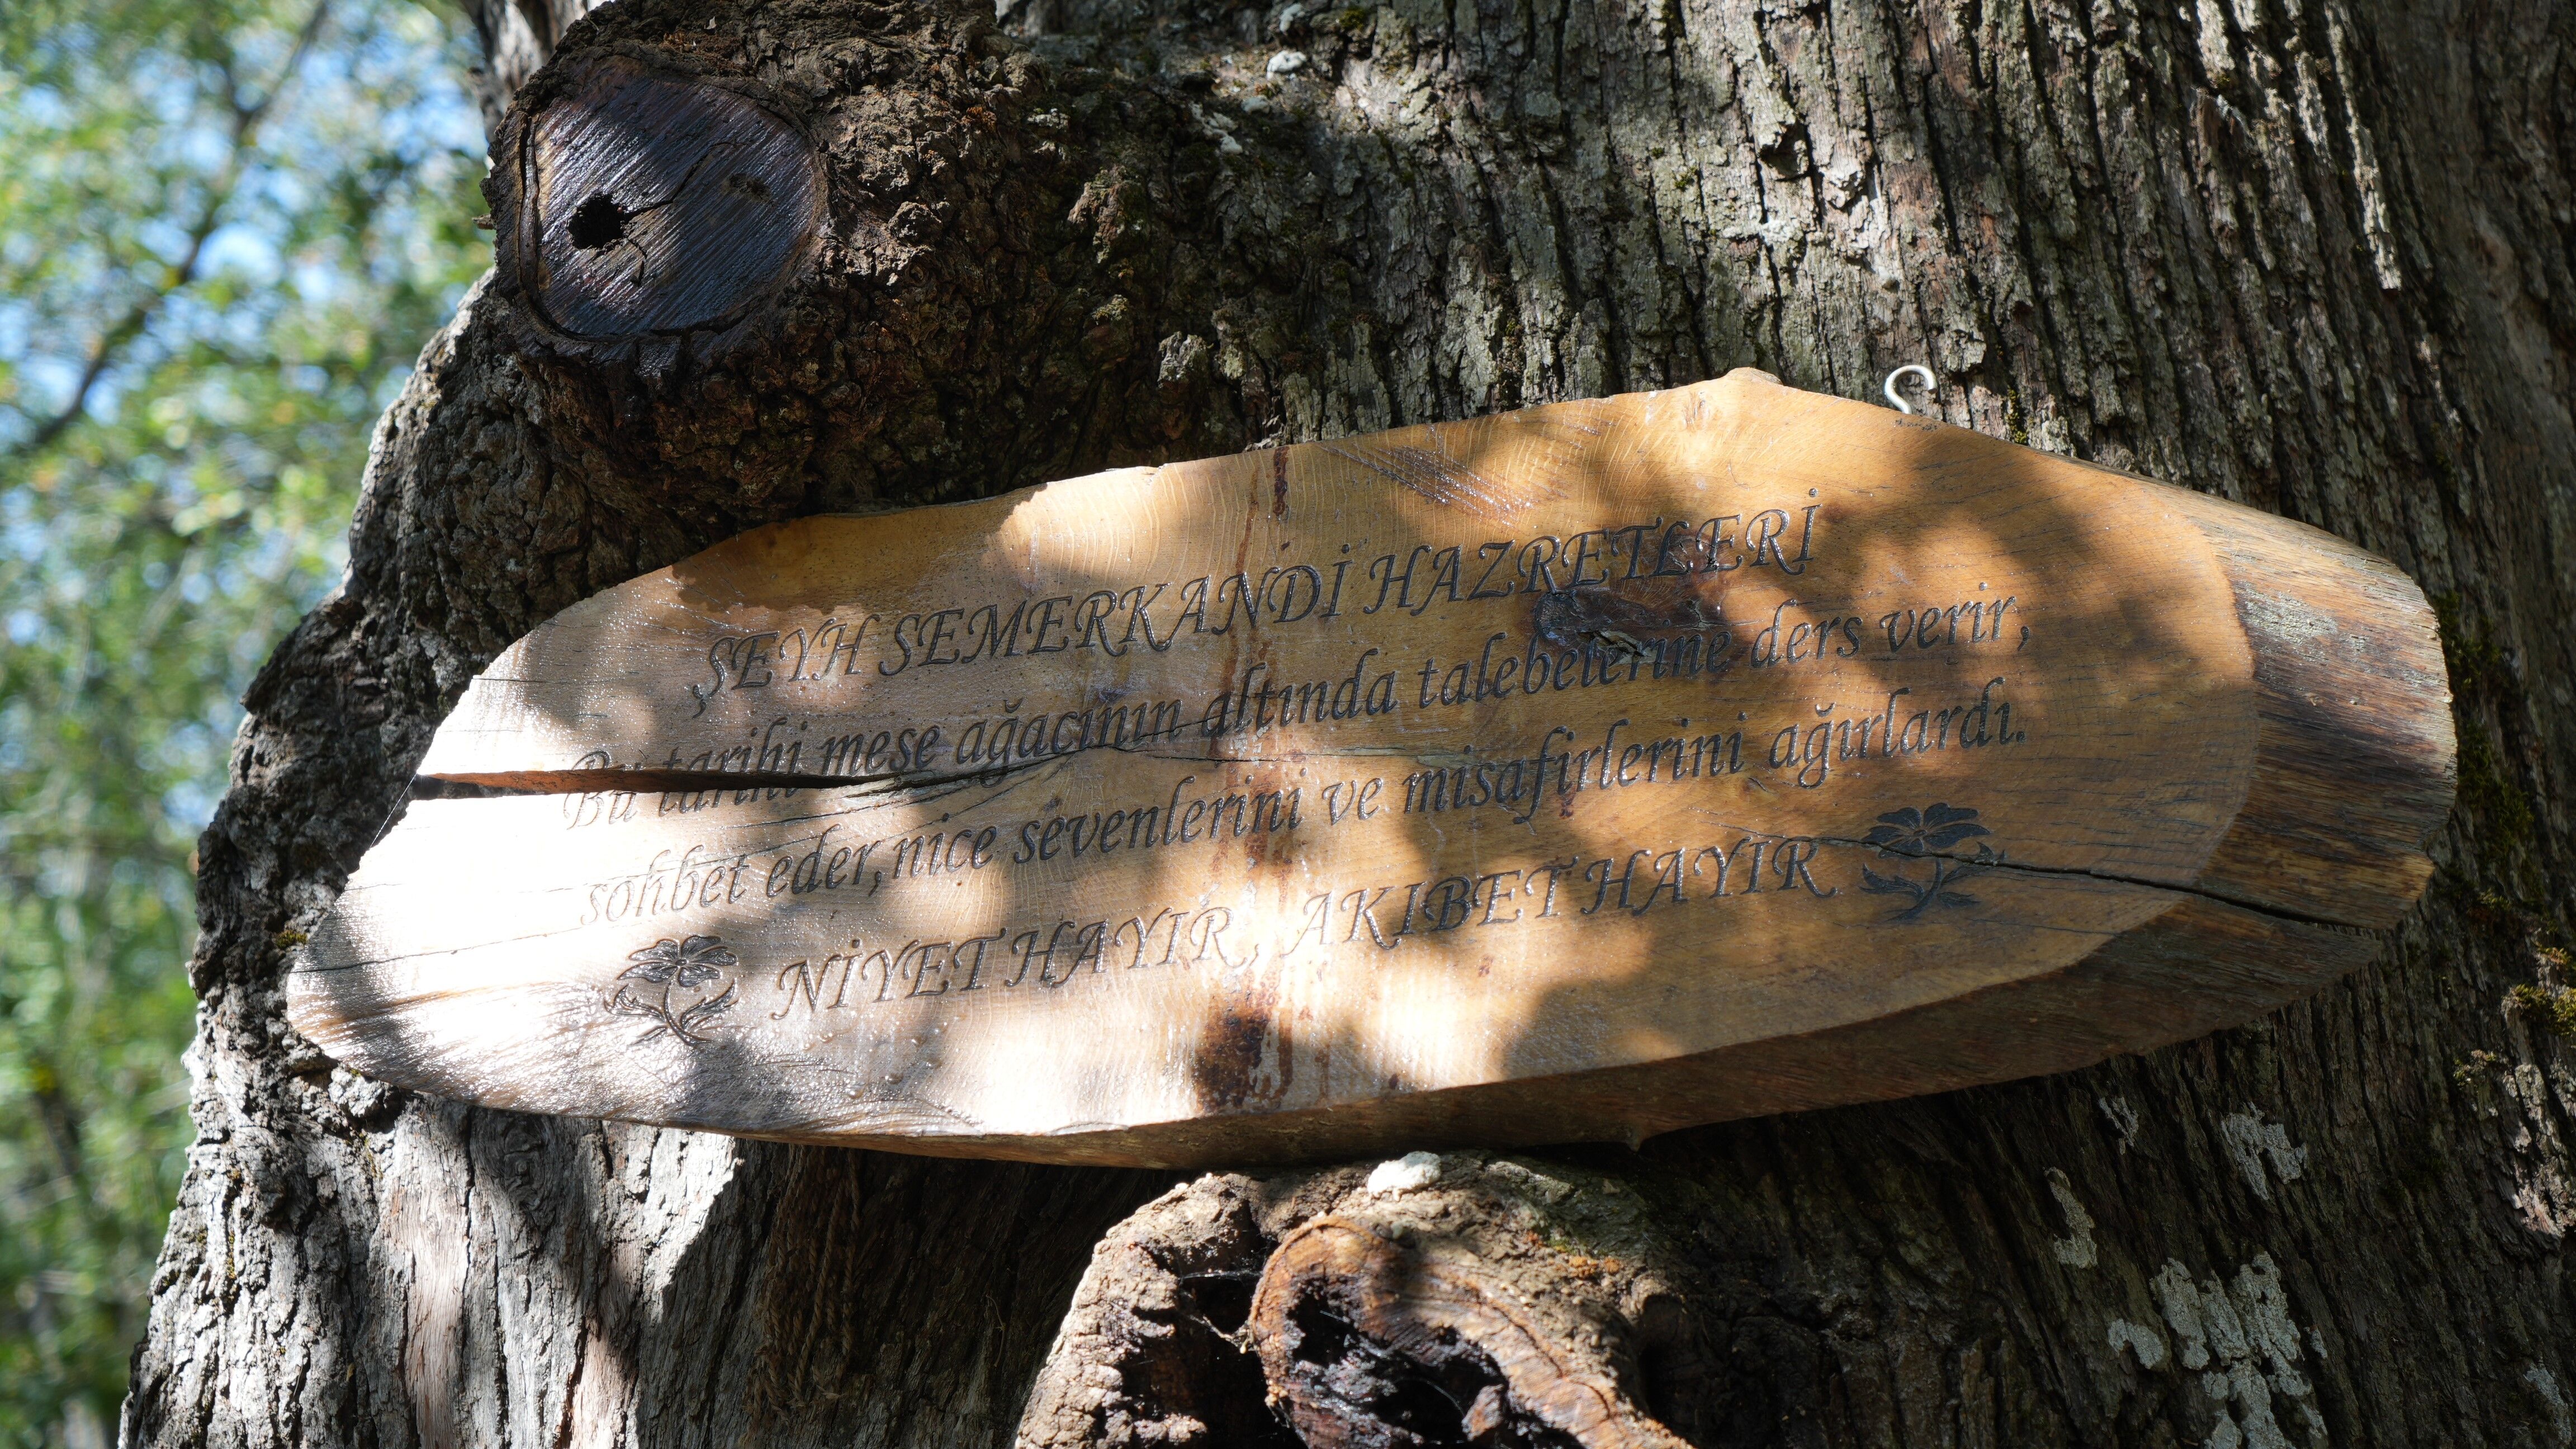 ŞEYH SEMERKANDİ HAZRETLERİ
Bu tarihi meşe ağacının altında talebelerine ders verir,
sohbet eder, nice sevenlerini ve misafirlerini ağırlardı.
NİYET HAYIR, AKIBET HAYIR